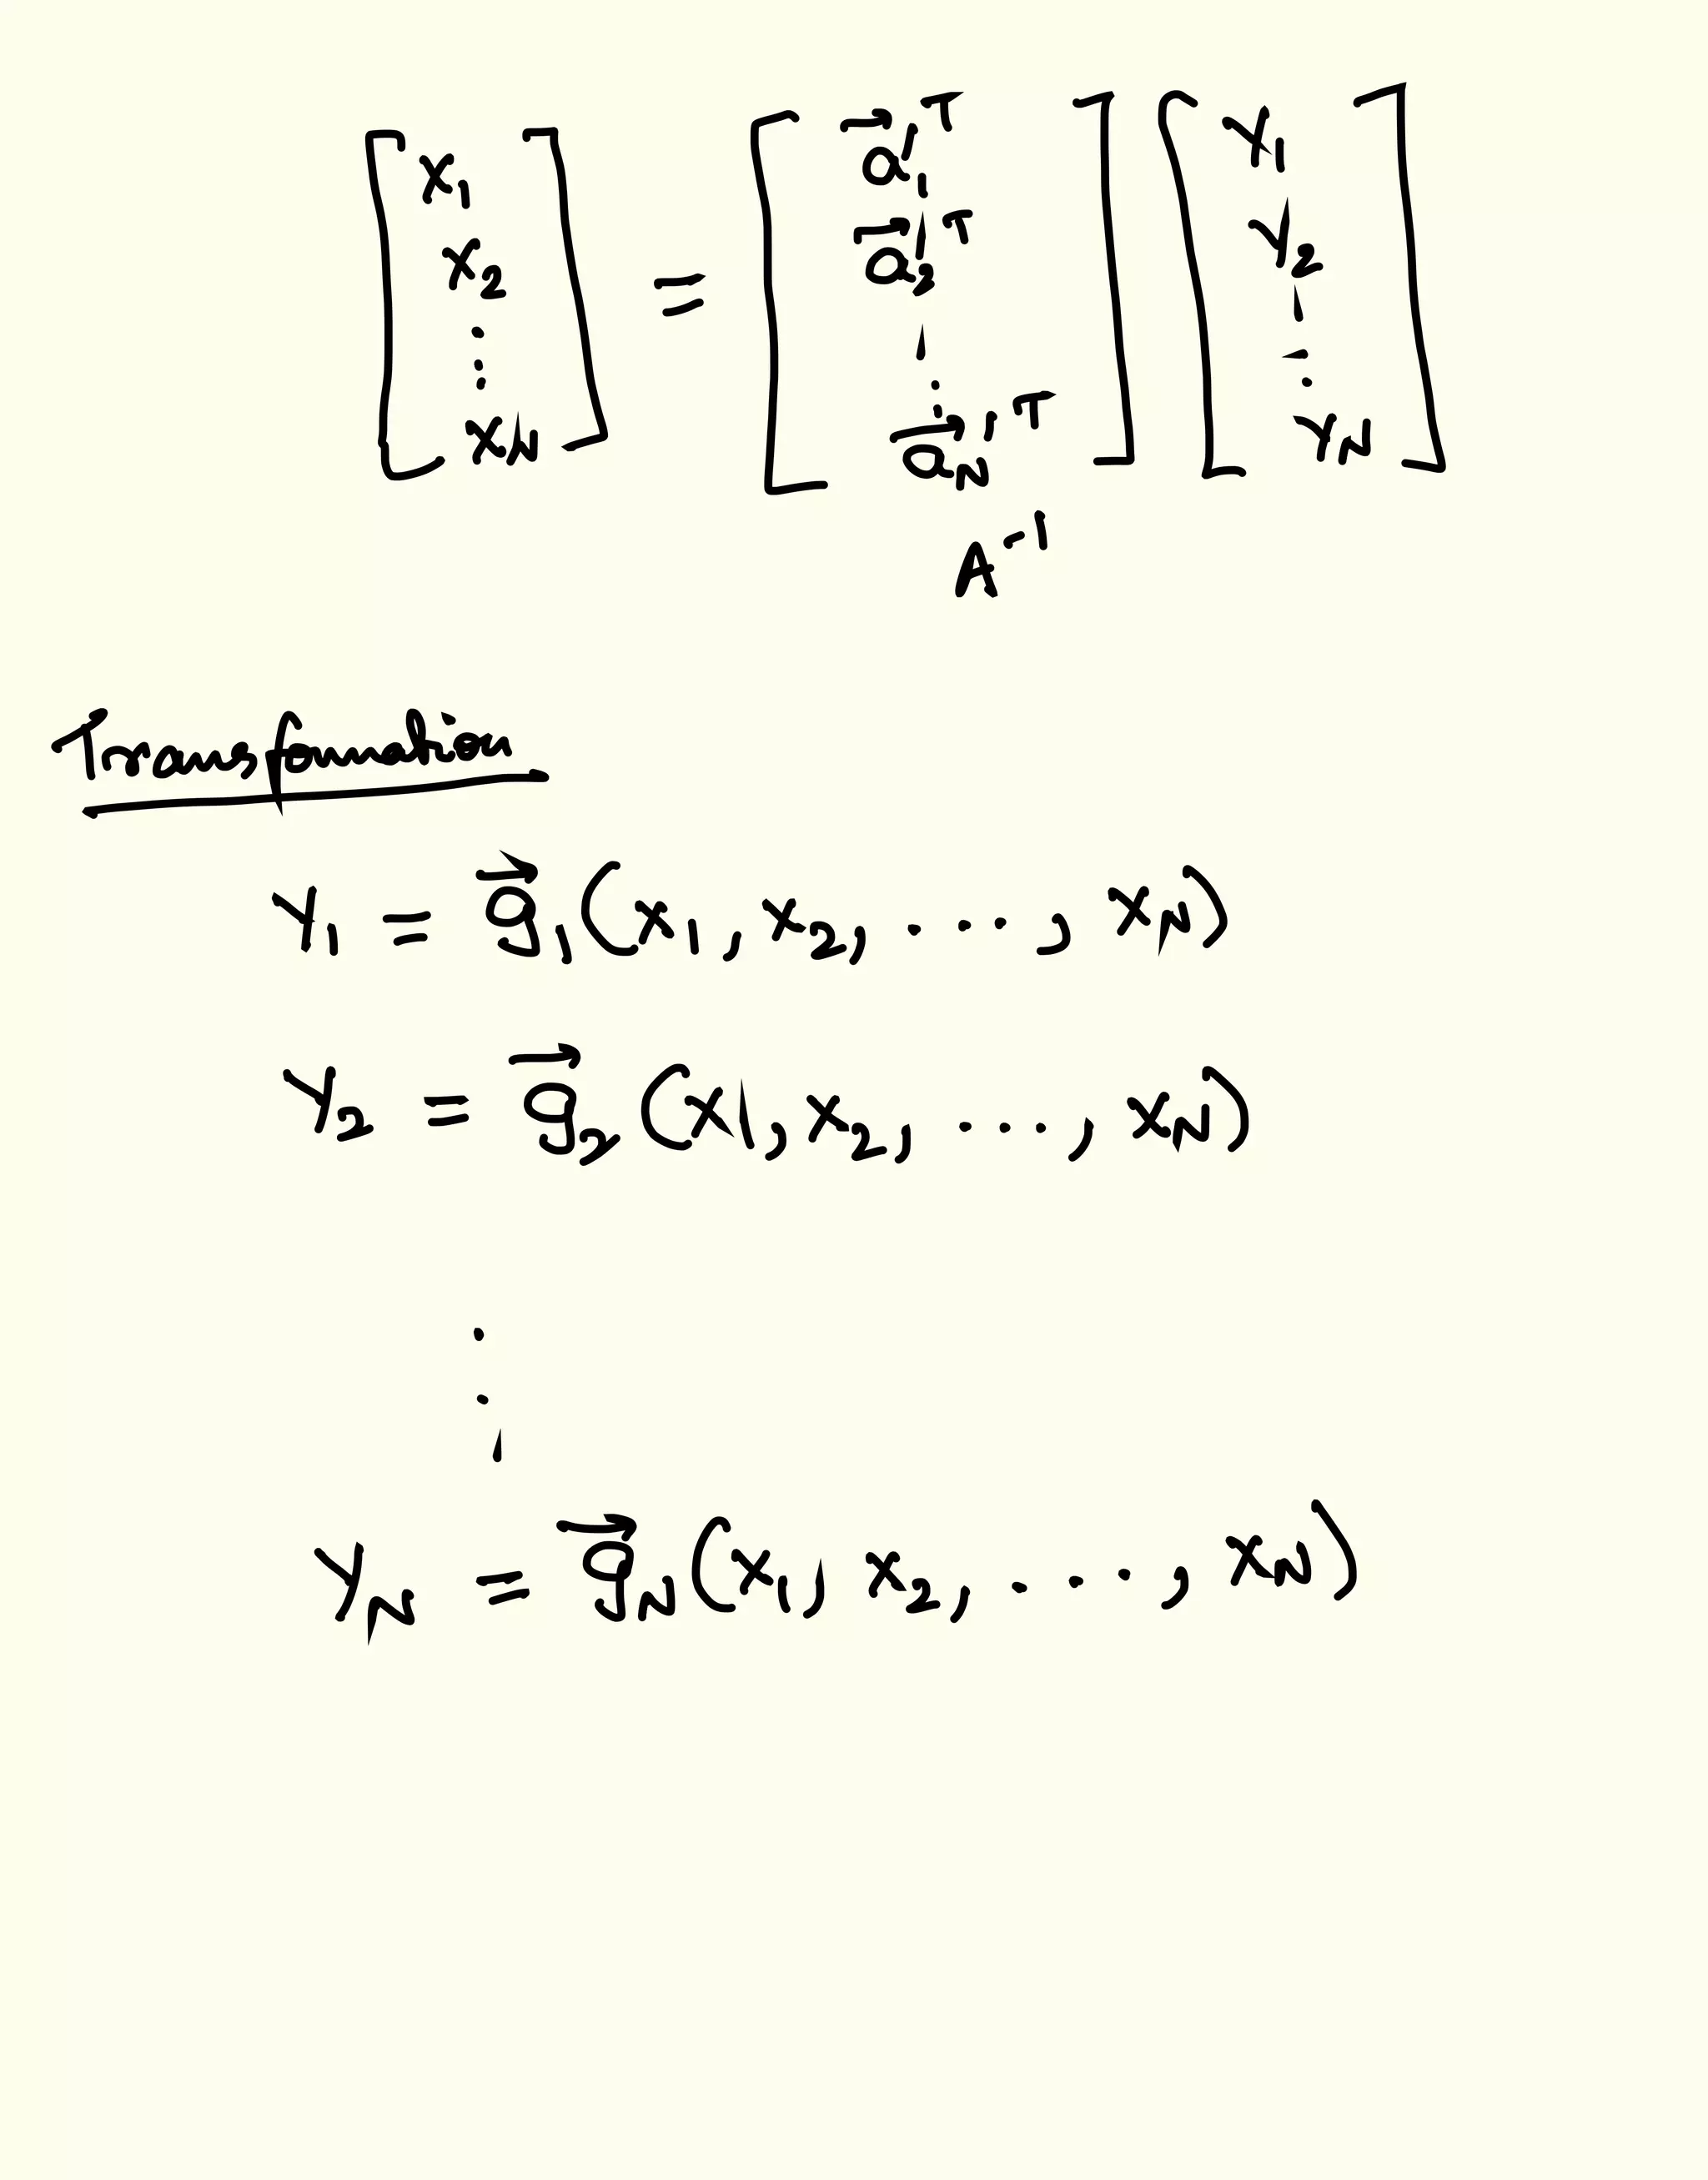 [x₁ x₂ ⋮ x_N] = [a⃗₁'ᵀ a⃗₂'ᵀ ⋮ a⃗_N'ᵀ] [Y₁ Y₂ ⋮ Y_N]
A⁻¹
Transformation
Y₁ = g⃗₁(x₁, x₂, ..., x_N)
Y₂ = g⃗₂(x₁, x₂, ..., x_N)
⋮
Y_N = g⃗_N(x₁, x₂, ..., x_N)